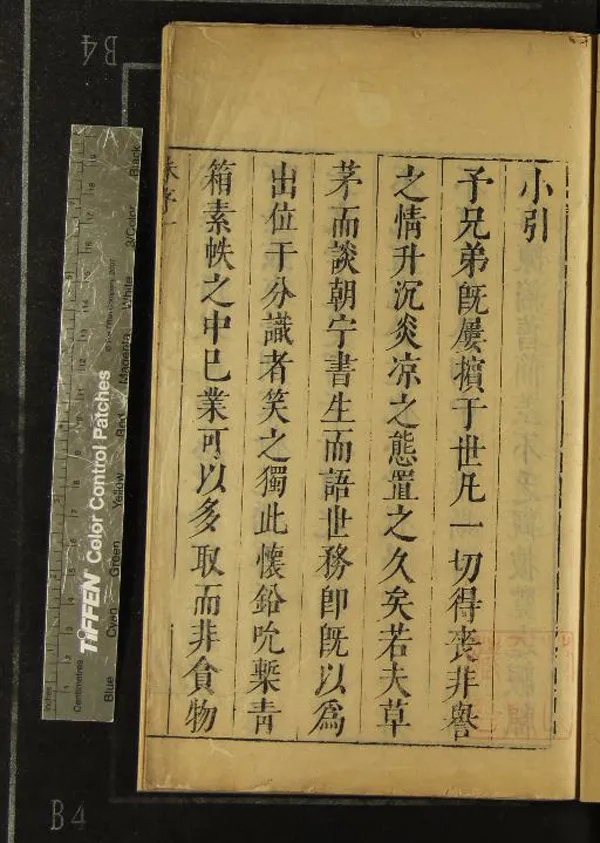 小引
予兄弟旣屢擯于世凡一切得喪非譽
之情升沉炎凉之態置之久矣若夫草
茅而談朝宁書生而語世務卽旣以爲
出位干分識者笑之獨此懷鉛吮槧青
箱素帙之中巳業可以多取而非貪物
序一
B4
B4
TIFFEN Color Control Patches
Inches
Centimetres
Blue
Cyan
Green
Yellow
Red
Magenta
White
3/Color
Black